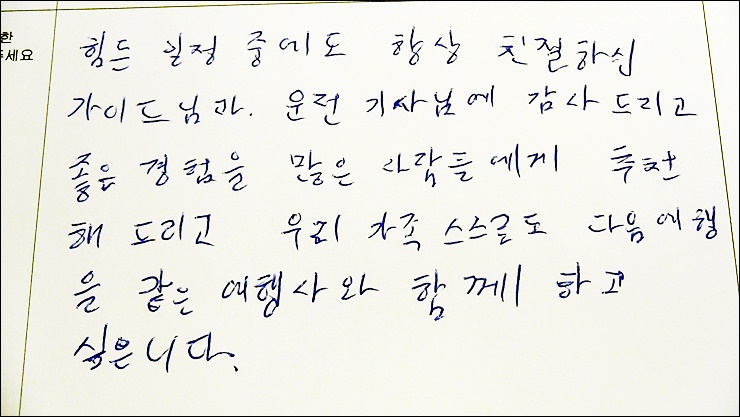 한
주세요
힘든 일정 중에도 항상 친절하신
가이드님과. 운전 기사님에 감사드리고
좋은 경험을 많은 사람들에게 추천
해 드리고 우리 가족 스스로도 다음에행
을 같은 여행사와 함께 하고
싶은니다.